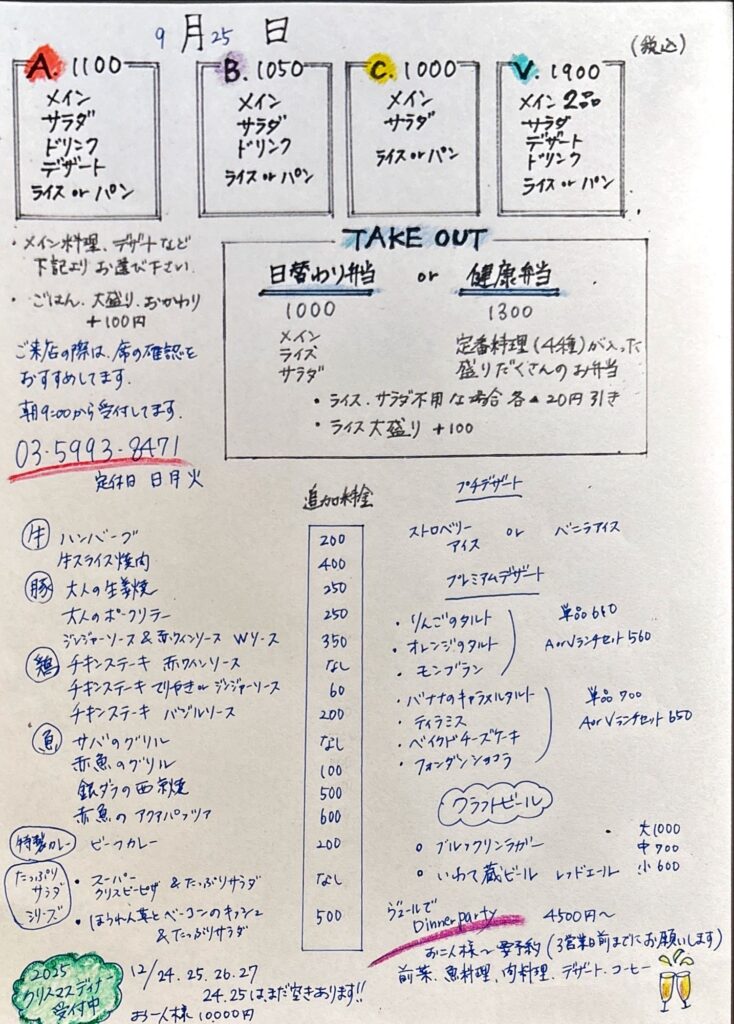 9月25日
(税込)
A. 1100
メイン
サラダ
ドリンク
デザート
ライス or パン
B. 1050
メイン
サラダ
ドリンク
ライス or パン
C. 1000
メイン
サラダ
ライス or パン
V. 1900
メイン 2品
サラダ
デザート
ドリンク
ライス or パン
・メイン料理、デザートなど
下記よりお選び下さい
・ごはん、大盛り、おかわり
+100円
ご来店の際は、席の確認を
おすすめしてます。
朝9:00から受付してます。
03-5993-8471
定休日 日月火
TAKE OUT
日替わり弁当 or 健康弁当
1000
メイン
ライス
サラダ
1300
定番料理(4種)が入った
盛りだくさんのお弁当
・ライス、サラダ不用な場合 各▲20円引き
・ライス大盛り +100
追加料金
牛 ハンバーグ 200
牛スライス焼肉 400
豚 大人の生姜焼 250
大人のポークソテー 250
ジンジャーソース&赤ワインソース Wソース 350
鶏 チキンステーキ 赤ワインソース なし
チキンステーキ てりやき or ジンジャーソース 60
チキンステーキ バジルソース 200
魚 サバのグリル なし
赤魚のグリル 100
銀ダラの西京焼 500
赤魚のアクアパッツァ 600
特製カレー ビーフカレー 200
たっぷり
サラダ
シリーズ
・スーパー
クリスピーピザ &たっぷりサラダ なし
・ほうれん草とベーコンのキッシュ 500
&たっぷりサラダ
プチデザート
ストロベリー
アイス or バニラアイス
プレミアムデザート
・りんごのタルト
・オレンジのタルト
・モンブラン
単品 610
A or Vランチセット 560
・バナナのキャラメルタルト
・ティラミス
・ベイクドチーズケーキ
・フォンダンショコラ
単品 700
A or Vランチセット 650
クラフトビール
○ ブルックリンラガー
○ いわて蔵ビール レッドエール
大1000
中 700
小 600
ジェールで
Dinner party 4500円〜
お二人様〜要予約(3営業日前までにお願いします)
前菜、魚料理、肉料理、デザート、コーヒー
2025
クリスマスディナー
受付中
12/24.25.26.27
24.25はまだ空きあります!!
お一人様 10000円